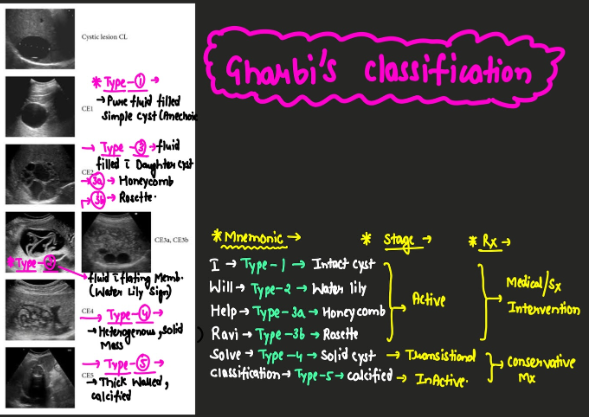 Gharbi's classification
Cystic lesion CL
* Type-①→
→Pure fluid filled
simple cyst (Anechoic
CE1
→ Type-③→fluid
filled c̄ Daughter cyst
CE2
→3a→ Honeycomb
→3b→ Rosette.
CE3a, CE3b
* Type-②
fluid c̄ floating Memb.
(Water Lily Sign)
CE4
→ Type-④→
→ Heterogenous, Solid
Mass
→ Type-⑤→
CE5
→ Thick Walled,
calcified
* Mnemonic → * Stage → * Rx →
I → Type-1 → Intact cyst
Will → Type-2 → Water lily
Help → Type-3a → Honeycomb
Ravi → Type-3b → Rosette
→ Active
→ Medical/Sx
Intervention
Solve → Type-4 → Solid cyst → Transistional
classification → Type-5 → calcified → InActive.
→ Conservative
Mx